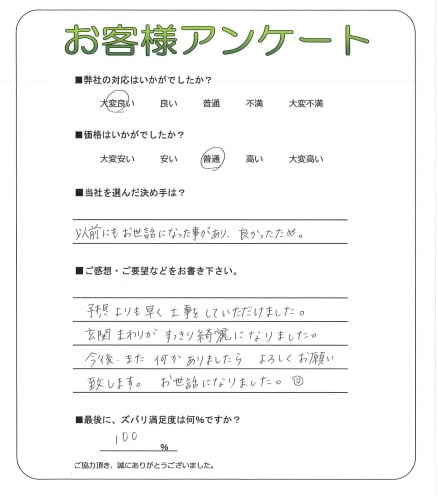 お客様アンケート
■弊社の対応はいかがでしたか？
大変良い 良い 普通 不満 大変不満
■価格はいかがでしたか？
大変安い 安い 普通 高い 大変高い
■当社を選んだ決め手は？
以前にもお世話になった事があり、良かったため。
■ご感想・ご要望などをお書き下さい。
予想よりも早く工事をしていただけました。
玄関まわりがすっきり綺麗になりました。
今後、また何かありましたらよろしくお願い
致します。 お世話になりました。
■最後に、ズバリ満足度は何%ですか？
100 %
ご協力頂き、誠にありがとうございました。